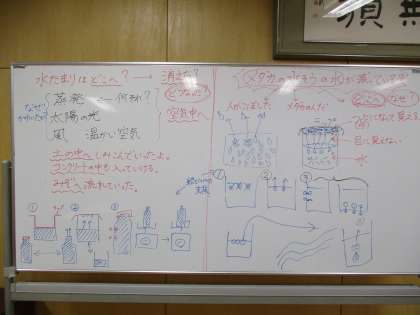 水たまりはどこへ? → 消えた?
どうなった?
空気中へ
なぜ?
かわいたか
蒸発 ← 何それ?
太陽の光
風 温かい空気
土の中へしみこんでいったよ。
コンクリートの中に入っていける。
みぞへ流れていった。
① ② ③
メダカの水そうの水が減っている!
どこへ なぜ?
人がこぼした メダカがのんだ
になって見える
目に見えない
水
① ② ③